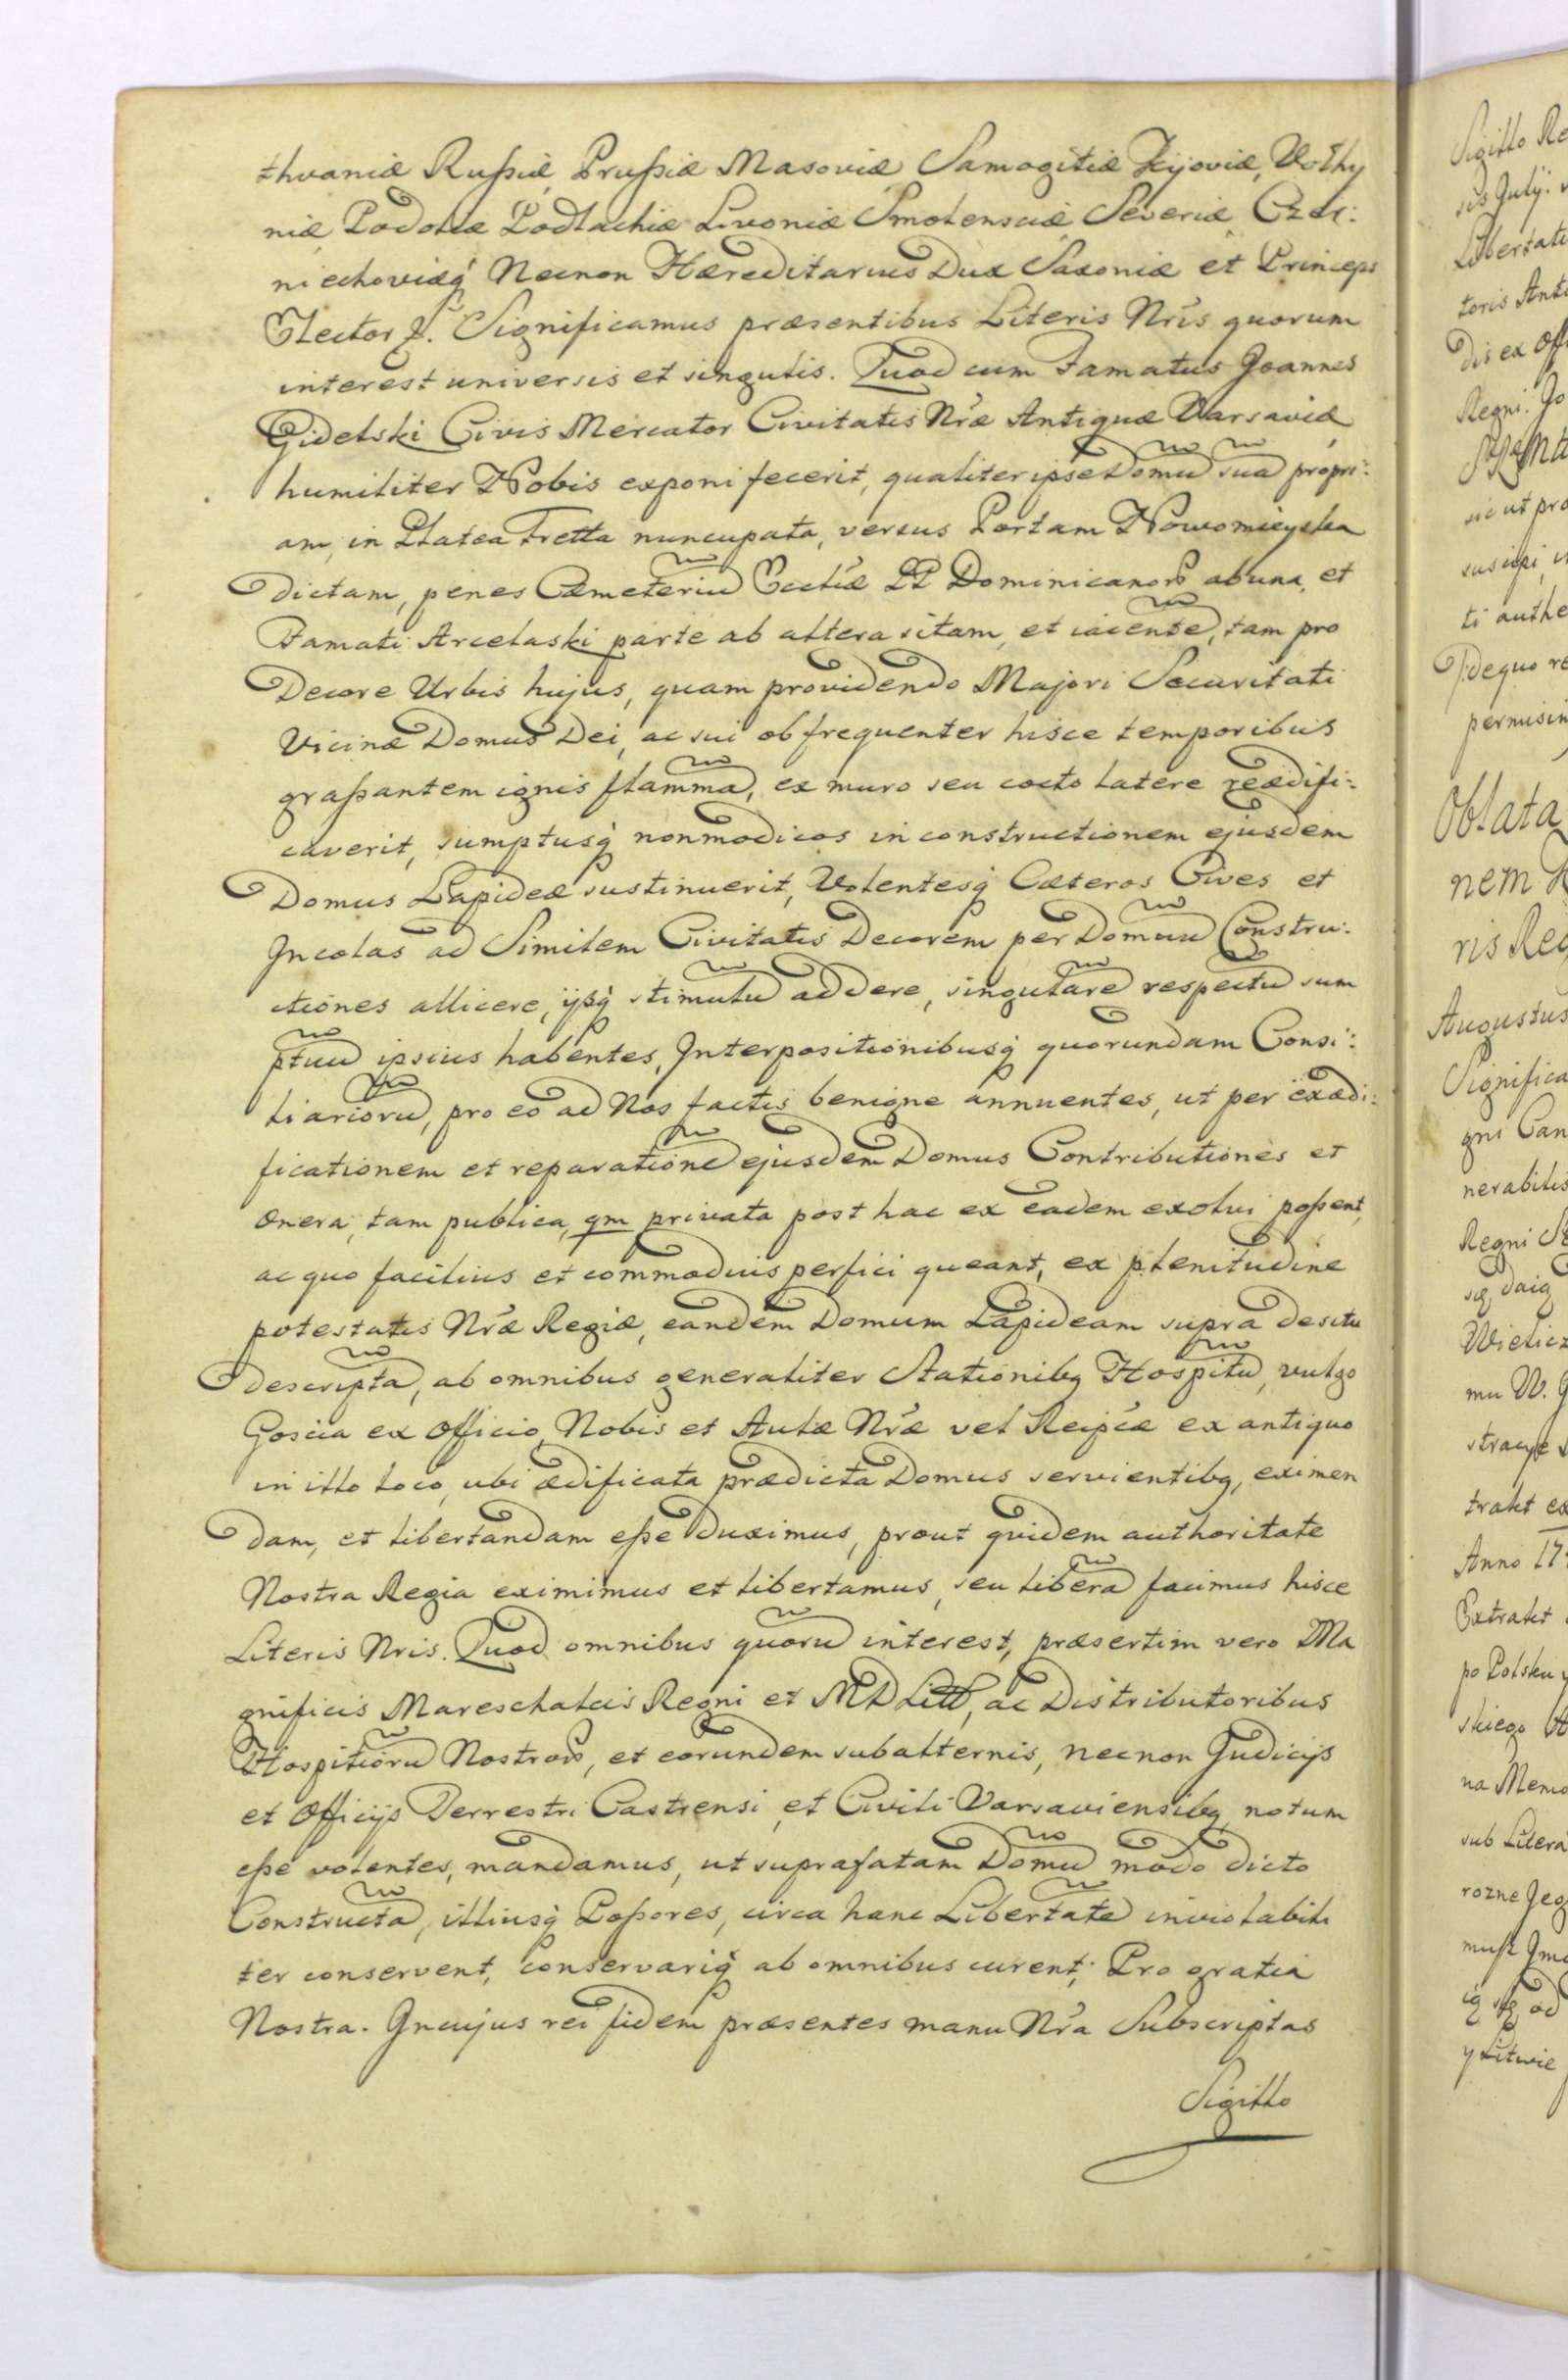 thvaniæ Rußiæ, Prußiæ Masoviæ Samogitiæ Kijoviæ, Volhy
niæ Podoliæ Podlachiæ Livoniæ Smolensciæ Severiæ, Czer:
niechoviæq́ Necnon Hæreditarius Dux Saxoniæ et Princeps
Elector &. Significamus præsentibus Literis Nris quorum
interest universis et singulis. Quod cum Famatus Joannes
Gidelski Civis Mercator Civitatis Nræ Antiquæ Varsaviæ
humiliter Nobis exponi fecerit, qualiter ipse Domū suā propri:
am, in Platea Fretta nuncupata, versus Portam Nowomieyska
Dictam, penes Cæmeteriū Eccliæ PP Dominicanorō ab una, et
Famati Arcelaski parte ab altera sitam, et iacentē, tam pro
Decore Urbis hujus, quam providendo Majori Securitati
Vicinæ Domus Dei, ac sui ob frequenter hisce temporibus
graßantem ignis flammā, ex muro seu cocto latere reædifi:
caverit, sumptusq́ non modicos in constructionem ejusdem
Domus Lapideæ sustinuerit, Volentesq́ Cæteros Cives et
Incolas ad Similem Civitatis Decorem per Domuū Constru:
ctiones allicere, ijsq́ stimulū addere, singularē respectū sum
ptuū ipsius habentes, Interpositionibusq́ quorundam Consi:
liariorū, pro eo ad Nos factis benigne annuentes, ut per exædi:
ficationem et reparationē ejusdem Domus Contributiones et
Onera, tam publica, qm privata post hac ex eadem exolvi poßent,
ac quo facilius et commodius perfici queant, ex plenitudine
potestatis Nræ Regiæ, eandem Domum Lapideam supra de situ
descriptā, ab omnibus generaliter Stationibq Hospitū, vulgo
Goscia ex Officio, Nobis et Aulæ Nræ vel Reipcæ ex antiquo
in illo loco, ubi ædificata prædicta Domus servientibq, eximen
dam, et libertandam eße duximus, prout quidem authoritate
Nostra Regia eximimus et libertamus, seu liberā facimus hisce
Literis Nris. Quod omnibus quorū interest, præsertim vero Ma
gnificis Mareschalcis Regni et M D Litt, ac Distributoribus
Hospitiorū Nostrorō, et eorundem subalternis, necnon Judicijs
et Officijs Terrestri Castrensi, et Civili Varsaviensibq notum
eße volentes, mandamus, ut suprafatam Domū modo dicto
Constructā, illiusq́ Poßores, circa hanc Libertatē inviolabili
ter conservent, conservariq́ ab omnibus curent, Pro gratia
Nostra. In cujus rei fidem præsentes manu Nra Subscriptas
Sigillo
Sigillo Re
Libertati
toris Ant
Regni. Jo
sic ut pro
ti authe
permisim
Oblata
nem
ris Reg
Augustus
Significa
gni Can
nerabilis
Regni
mu W.
trakt ex
Anno 17
Extrakt
po Polsku y
skiego
na Memo
sub Litera
y Litwie